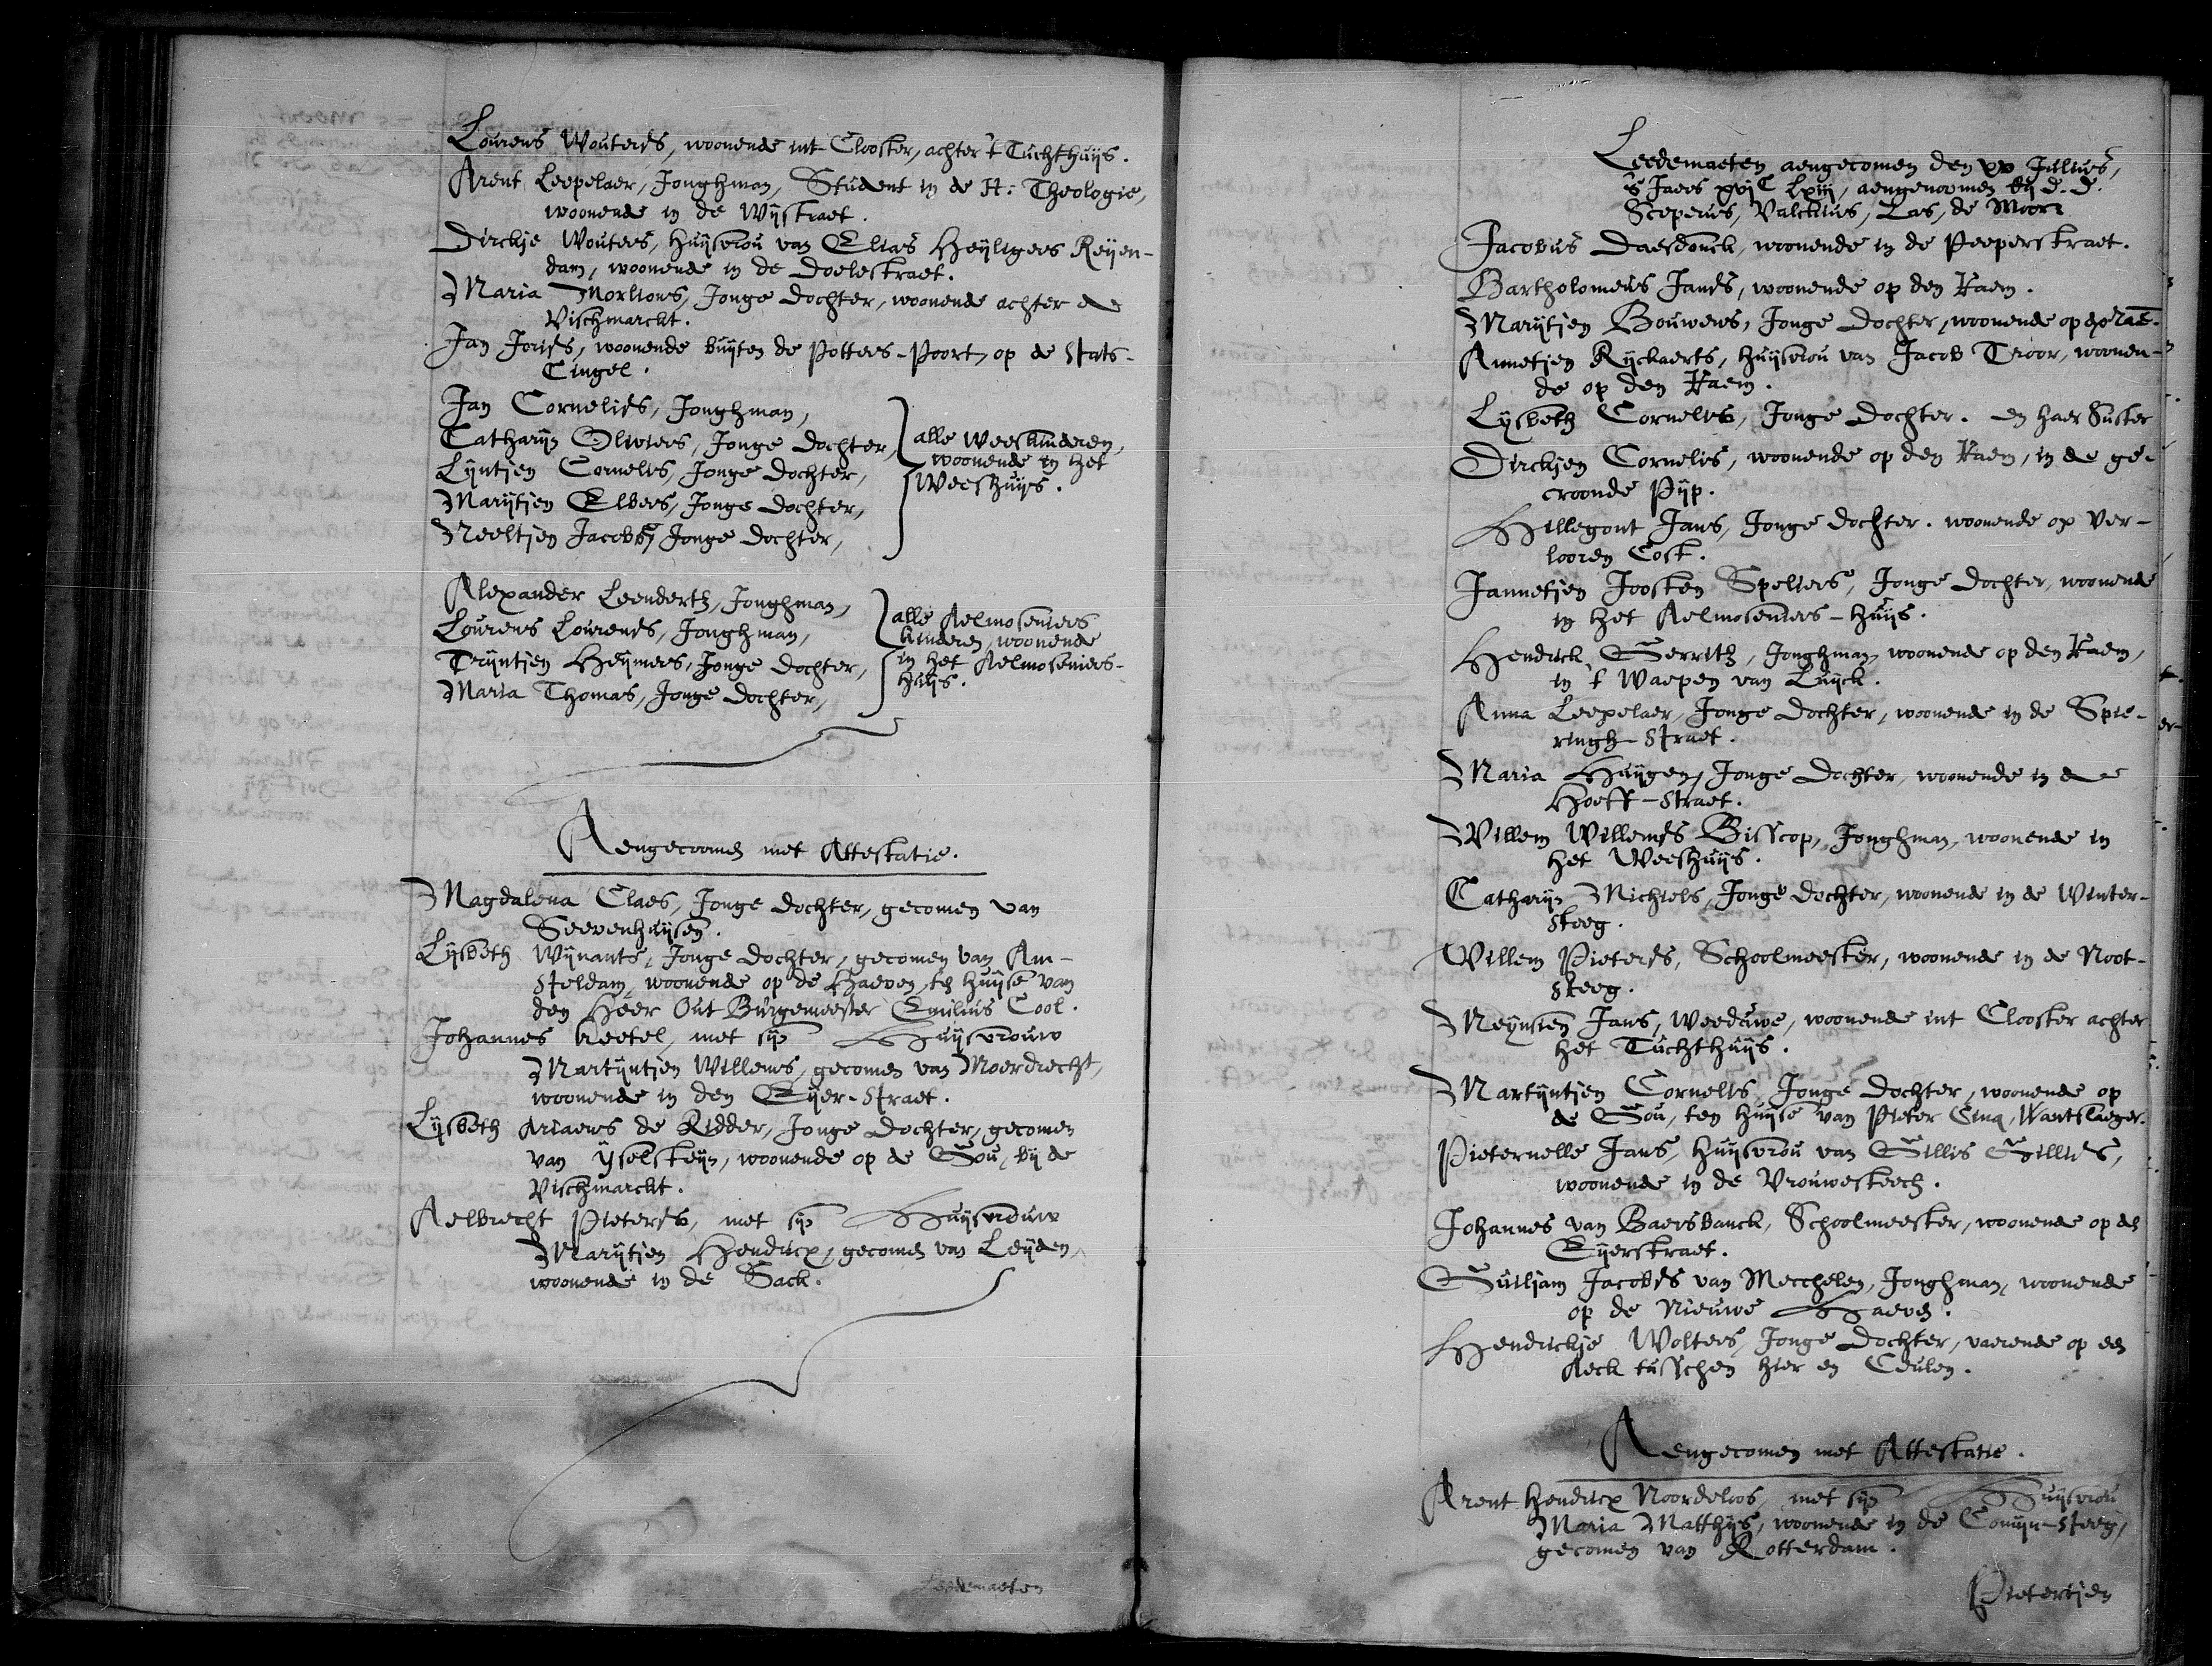 Lourens Wouterss, woonende int Clooster, achter 't Tuchthuijs.
Arent Leepelaer, Jonghman, Student in de H: Theologie,
woonende in de Wijstraet.
Dirckje Wouters, huijsvrou van Elias Heyligers Reyen-
dam, woonende in de doelestraet.
Maria Morlions, Jonge dochter, woonende achter de
Vischmarckt.
Jan Joriss, woonende buyten de Potters-Poort, op de Stats-
Cingel.
Jan Corneliss, Jonghman,
Catharijn Oliviers, Jonge dochter,
Lyntjen Cornelis, Jonge dochter,
Marijtjen Elbers, Jonge dochter,
Neeltjen Jacobs, Jonge dochter,
alle Weeskinderen,
woonende in het
Weeshuijs.
Alexander Leendertz, Jonghman,
Lourens Lourenss, Jonghman,
Trijntjen Heymers, Jonge dochter,
Maria Thomas, Jonge dochter,
alle Aelmoseniers
kinderen, woonende
in het Aelmoseniers-
huijs.
Aengecoomen met Attestatie.
Magdalena Claes, Jonge dochter, gecomen van
Seevenhuijsen.
Lijsbeth Wijnants, Jonge dochter, gecomen van Am-
steldam, woonende op de Haeven, ten huijse van
den Heer Out Burgemeester Emilius Cool.
Johannes Keetel, met sijn Huijsvrouw
Martijntjen Willems, gecomen van Moerdrecht,
woonende in den Eijer-Straet.
Lijsbeth Ariaens de Ridder, Jonge dochter, gecomen
van IJselsteijn, woonende op de Gou, bij de
Vischmarckt.
Aelbrecht Pieterss, met sijn Huijsvrouw
Marijtjen Hendricx, gecomen van Leijden,
woonende in de Sack.
Leedemaeten
Leedemaeten aengecomen den xv Julius,
's Jaers xvjC Lxiij, aengenoomen bij d. d.
Sceperus, Valckius, Las, de Moor:
Jacobus Daesdonck, woonende in de Peeperstraet.
Bartholomeus Janss, woonende op den Raem.
Marijtjen Bouwens, Jonge dochter, woonende op de Raem.
Annetjen Ryckaerts, huijsvrou van Jacob Troor, woonen-
de op den Raem.
Lijsbeth Cornelis, Jonge dochter. en haer Suster
Dirckjen Cornelis, woonende op den Raem, in de ge-
croonde Pijp.
Hillegont Jans, Jonge dochter. woonende op Ver-
looren Cost.
Jannetjen Joosten Speliers, Jonge dochter, woonende
in het Aelmoseniers-huijs.
Hendrick Gerritz, Jonghman, woonende op den Raem,
in 't Waepen van Luijck.
Anna Leepelaer, Jonge dochter, woonende in de Spie-
ringh-Straet.
Maria Huijgen, Jonge dochter, woonende in de
Hoeff-Straet.
Willem Willemss Bisscop, Jonghman, woonende in
het Weeshuijs.
Catharijn Michiels, Jonge dochter, woonende in de Winter-
steeg.
Willem Pieterss, Schoolmeester, woonende in de Noot-
steeg.
Neijnsien Jans, Weeduwe, woonende int Clooster achter
het Tuchthuijs.
Martijntjen Cornelis, Jonge dochter, woonende op
de Gou, ten huijse van Pieter Cinq, Wantslaeger.
Pieternelle Jans, huijsvrou van Gillis Gilliss,
woonende in de Vrouwesteech.
Johannes van Baersbanck, Schoolmeester, woonende op de
Eijerstraet.
Guiljam Jacobss van Mecchelen, Jonghman, woonende
op de Nieuwe Haeven.
Hendrickje Wolters, Jonge dochter, vaerende op een
Aeck tusschen hier en Ceulen.
Aengecomen met Attestatie.
Arent Hendricx Noordeloos, met sijn Huijsvrou
Maria Matthijs, woonende in de Comijn-steeg,
gecomen van Rotterdam.
Pietertjen